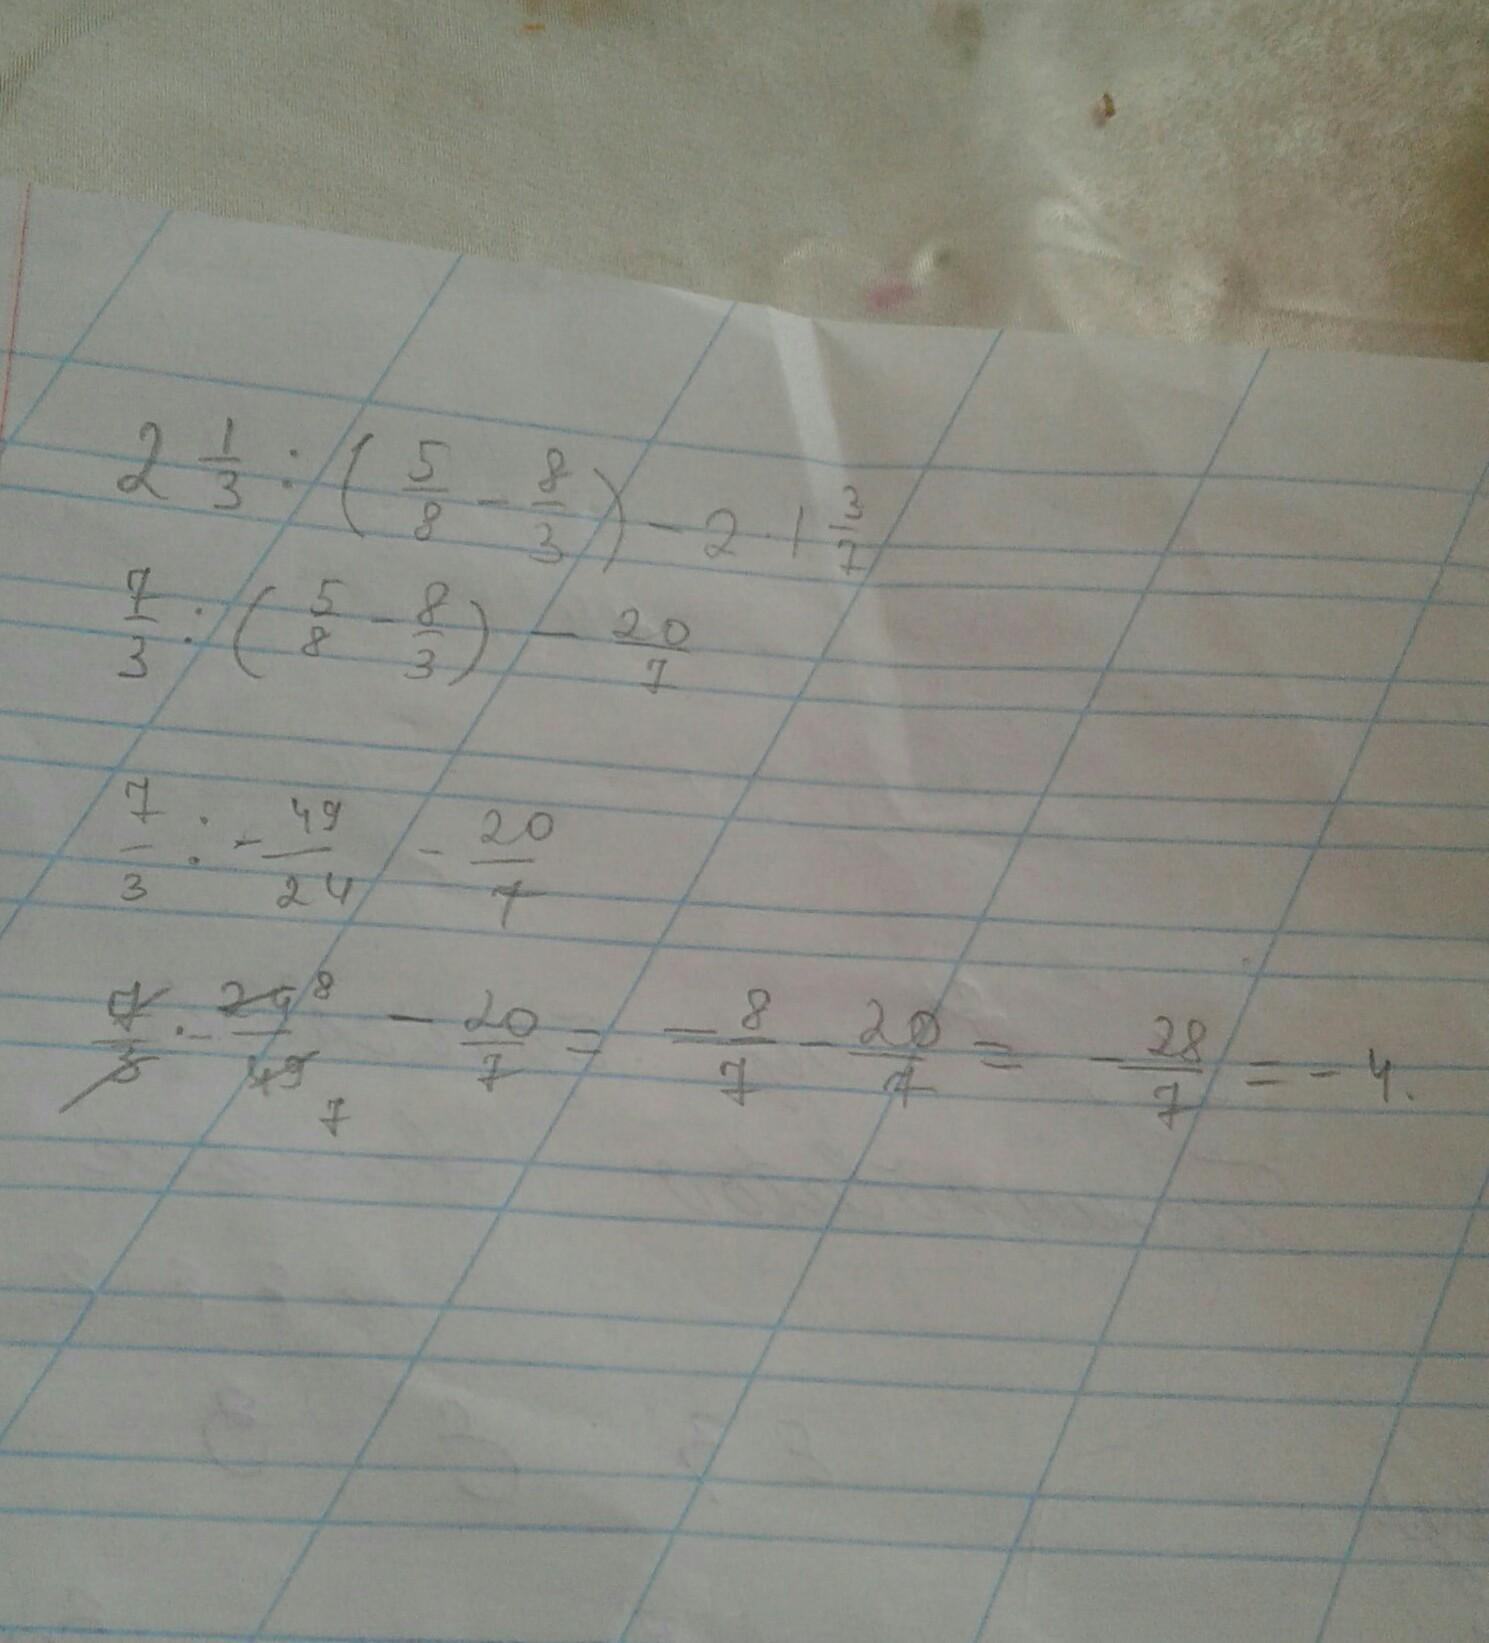 2 1/3 : (5/8 - 8/3) - 2 · 1 3/7
7/3 : (5/8 - 8/3) - 20/7
7/3 : - 49/24 - 20/7
7/3 · - 24 8/49 7 - 20/7 = - 8/7 - 20/7 = - 28/7 = - 4.